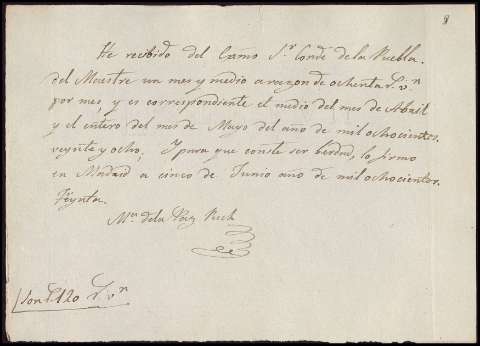 8
He recibido del Exmo Sr. Conde de la Puebla
del Maestre un mes y medio a razon de ochenta Rs. vn
por mes, y es correspondiente el medio del mes de Abril
y el entero del mes de Mayo del año de mil ochocientos
veynte y ocho; Y para que conste ser berdad, lo firmo
en Madrid a cinco de Junio año de mil ochocientos
Treynta.
Ma. de la Paz
Son 120 Rs. vn